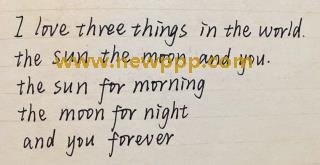 I love three things in the world.
the sun the moon and you.
www.newppp.com
the sun for morning
the moon for night
and you forever